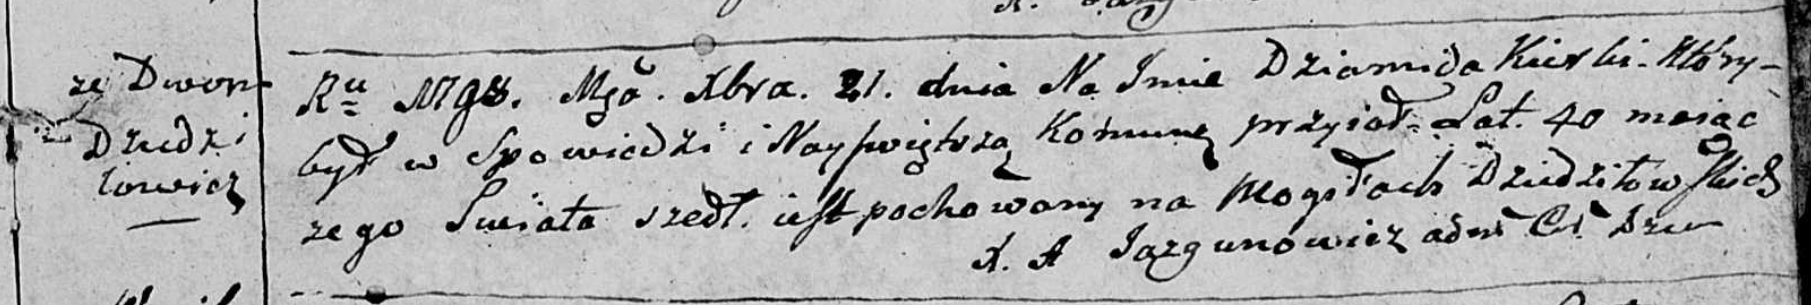 ze Dwor-
Dziedzi
łowicz
Ru 1798. Mja. Xbra. 21. dnia Na Imie Dziamida Kierki. Który-
był w Spowiedzi i Nayswiętrzą Komunę przyioł. Lat. 40 maiąc
zego Swiata szedł. iest pochowany na Mogiłach Dziedziłowskich
X. A Jazgunowicz adm Ce. Dzie